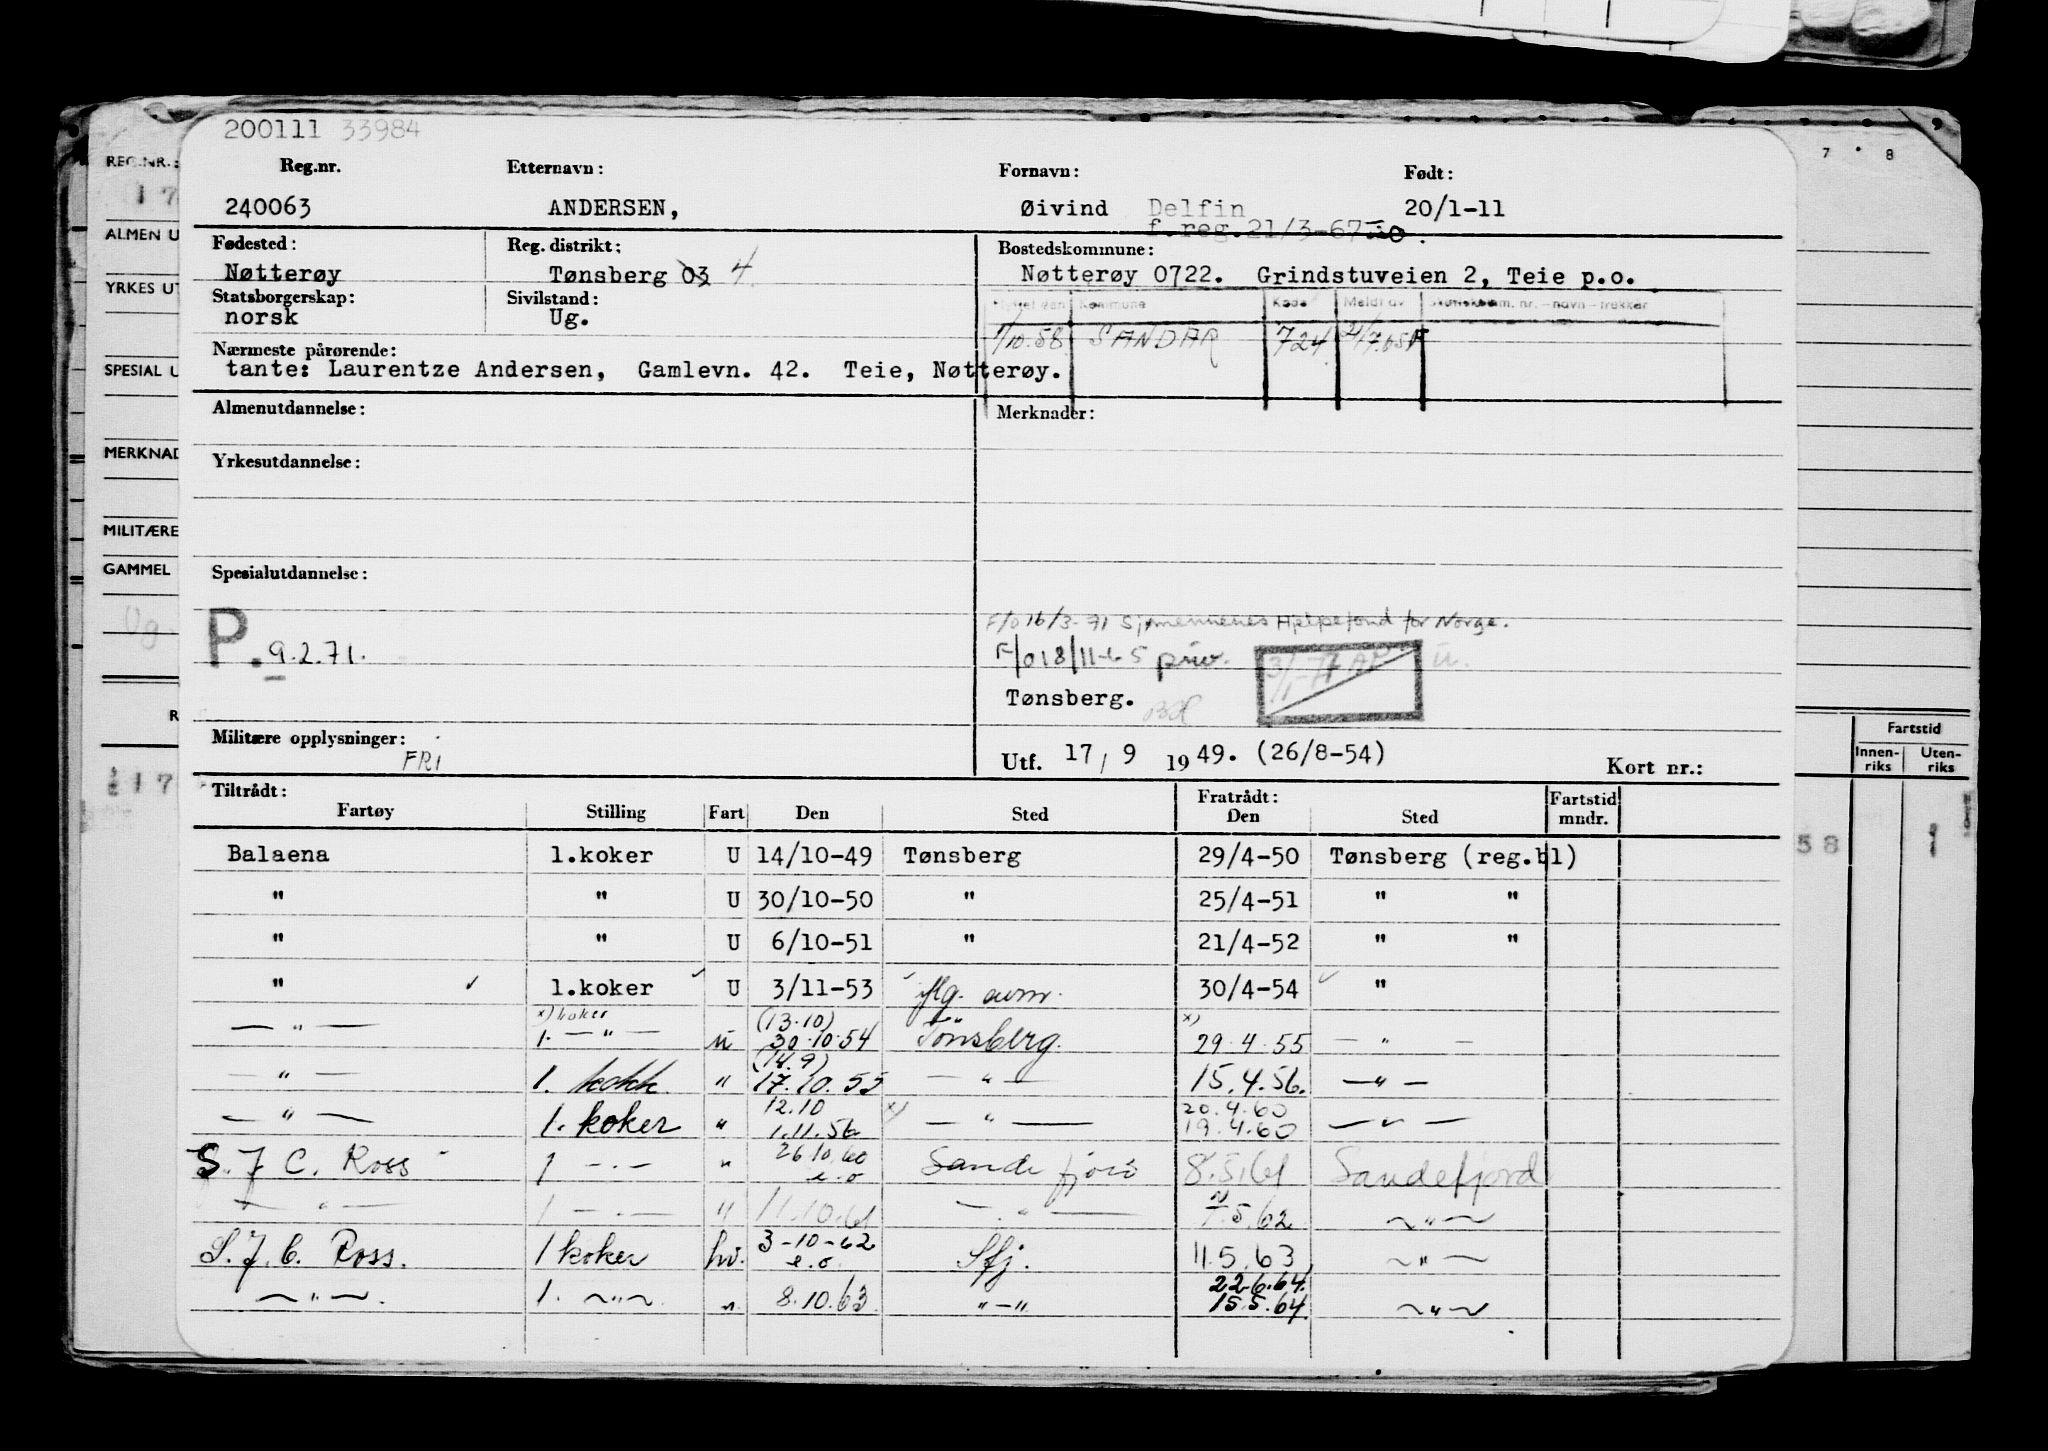 200111 33984
Reg.nr. Etternavn: Fornavn: Født:
240063 ANDERSEN, Øivind Delfin 20/1-11
f.reg.21/3-67
Fødested: Reg. distrikt: Bostedskommune:
Nøtterøy Tønsberg 03 4 Nøtterøy 0722. Grindstuveien 2, Teie p.o.
Statsborgerskap: Sivilstand:
norsk Ug.
Kommune Kode Meldt av
1/10.58 SANDAR 724
Nærmeste pårørende:
tante: Laurentze Andersen, Gamlevn. 42. Teie, Nøtterøy.
Almenutdannelse: Merknader:
Yrkesutdannelse:
Spesialutdannelse:
F/O 16/3-71 Sjømennenes Hjelpefond for Norge.
P. 9.2.71. F/O 18/11-65 priv.
Tønsberg.
Militære opplysninger: FRI
Utf. 17/9 1949. (26/8-54) Kort nr.:
Tiltrådt: Fratrådt: Fartstid
Fartøy Stilling Fart Den Sted Den Sted mndr.
Balaena 1.koker U 14/10-49 Tønsberg 29/4-50 Tønsberg (reg.bl)
" " U 30/10-50 " 25/4-51 " "
" " U 6/10-51 " 21/4-52 " "
" 1.koker U 3/11-53 iflg. avm. 30/4-54 "
x) koker (13.10) x)
— " — 1. — " — u 30.10.54 Tönsberg 29.4.55 — " —
(14.9)
— " — 1. kokk " 17.10.55 — " — 15.4.56. — " —
12.10 x) 20.4.60
— " — 1. koker " 1.11.56 — " — 19.4.60 — " —
S. J C. Ross 1 — . — " 26.10.60 e.o Sandefjord 8.5.61 Sandefjord
— " — 1 — . — " 11.10.61 — " — 7.5.62 ~ " ~
S. J. C. Ross. 1 koker hv. 3-10-62 e.o. Sfj. 11.5.63 ~ " —
22.6.64.
~ " ~. 1. ~ " ~. " 8.10.63 " — " 15.5.64 ~ " ~
REG.NR.:
17
ALMEN U
YRKES UT
SPESIAL U
MERKNAD
MILITÆRE
GAMMEL
Ug.
R
17
7 8
Fartstid
Innen-riks Uten-riks
58 1